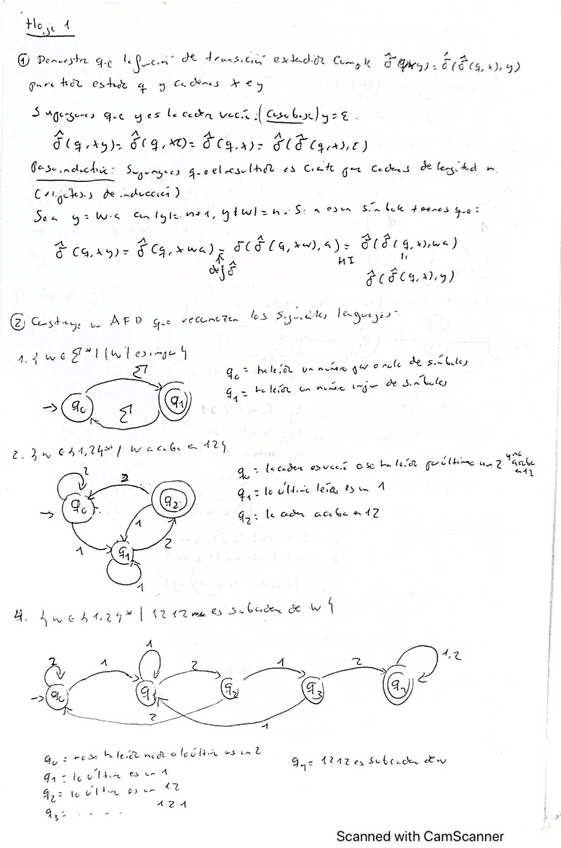 Hoja 1
① Demuestra que la función de transición extendida cumple δ̂(q,xy) = δ̂(δ̂(q,x),y)
para todo estado q y cadenas x e y
Supongamos que y es la cadena vacía. (Caso base) y=ε
δ̂(q,xy) = δ̂(q,xε) = δ̂(q,x) = δ̂(δ̂(q,x),ε)
Paso inductivo: Supongamos que el resultado es cierto para cadenas de longitud n.
(Hipótesis de inducción)
Sea y = w·a con |y|=n+1, y |w|=n. Si a es un símbolo tenemos que:
δ̂(q,xy) = δ̂(q,xwa) = δ(δ̂(q,xw),a) = δ̂(δ̂(q,x),wa)
def δ̂ HI "
δ̂(δ̂(q,x),y)
② Construye un AFD que reconozcan los siguientes lenguajes:
1. { w ∈ Σ* | |w| es impar }
Σ
q₀ q₁
Σ
q₀ = ha leído un número par o nulo de símbolos
q₁ = ha leído un número impar de símbolos
2. { w ∈ {1,2}* / w acaba en 12 }
2 2
q₀ q₂
1 q₁ 1 2
1
q₀ = la cadena es vacía o se ha leído por último un 2 y no acaba en 12
q₁ = lo último leído es un 1
q₂ = la cadena acaba en 12
4. { w ∈ {1,2}* | 1212 es subcadena de w }
2 1 1 2 1 2 1,2
q₀ q₁ q₂ q₃ q₄
2 1
q₀ = no se ha leído nada o lo último es un 2
q₁ = lo último es un 1
q₂ = lo último es un 12
q₃ = ..... 121
q₄ = 1212 es subcadena de w
Scanned with CamScanner